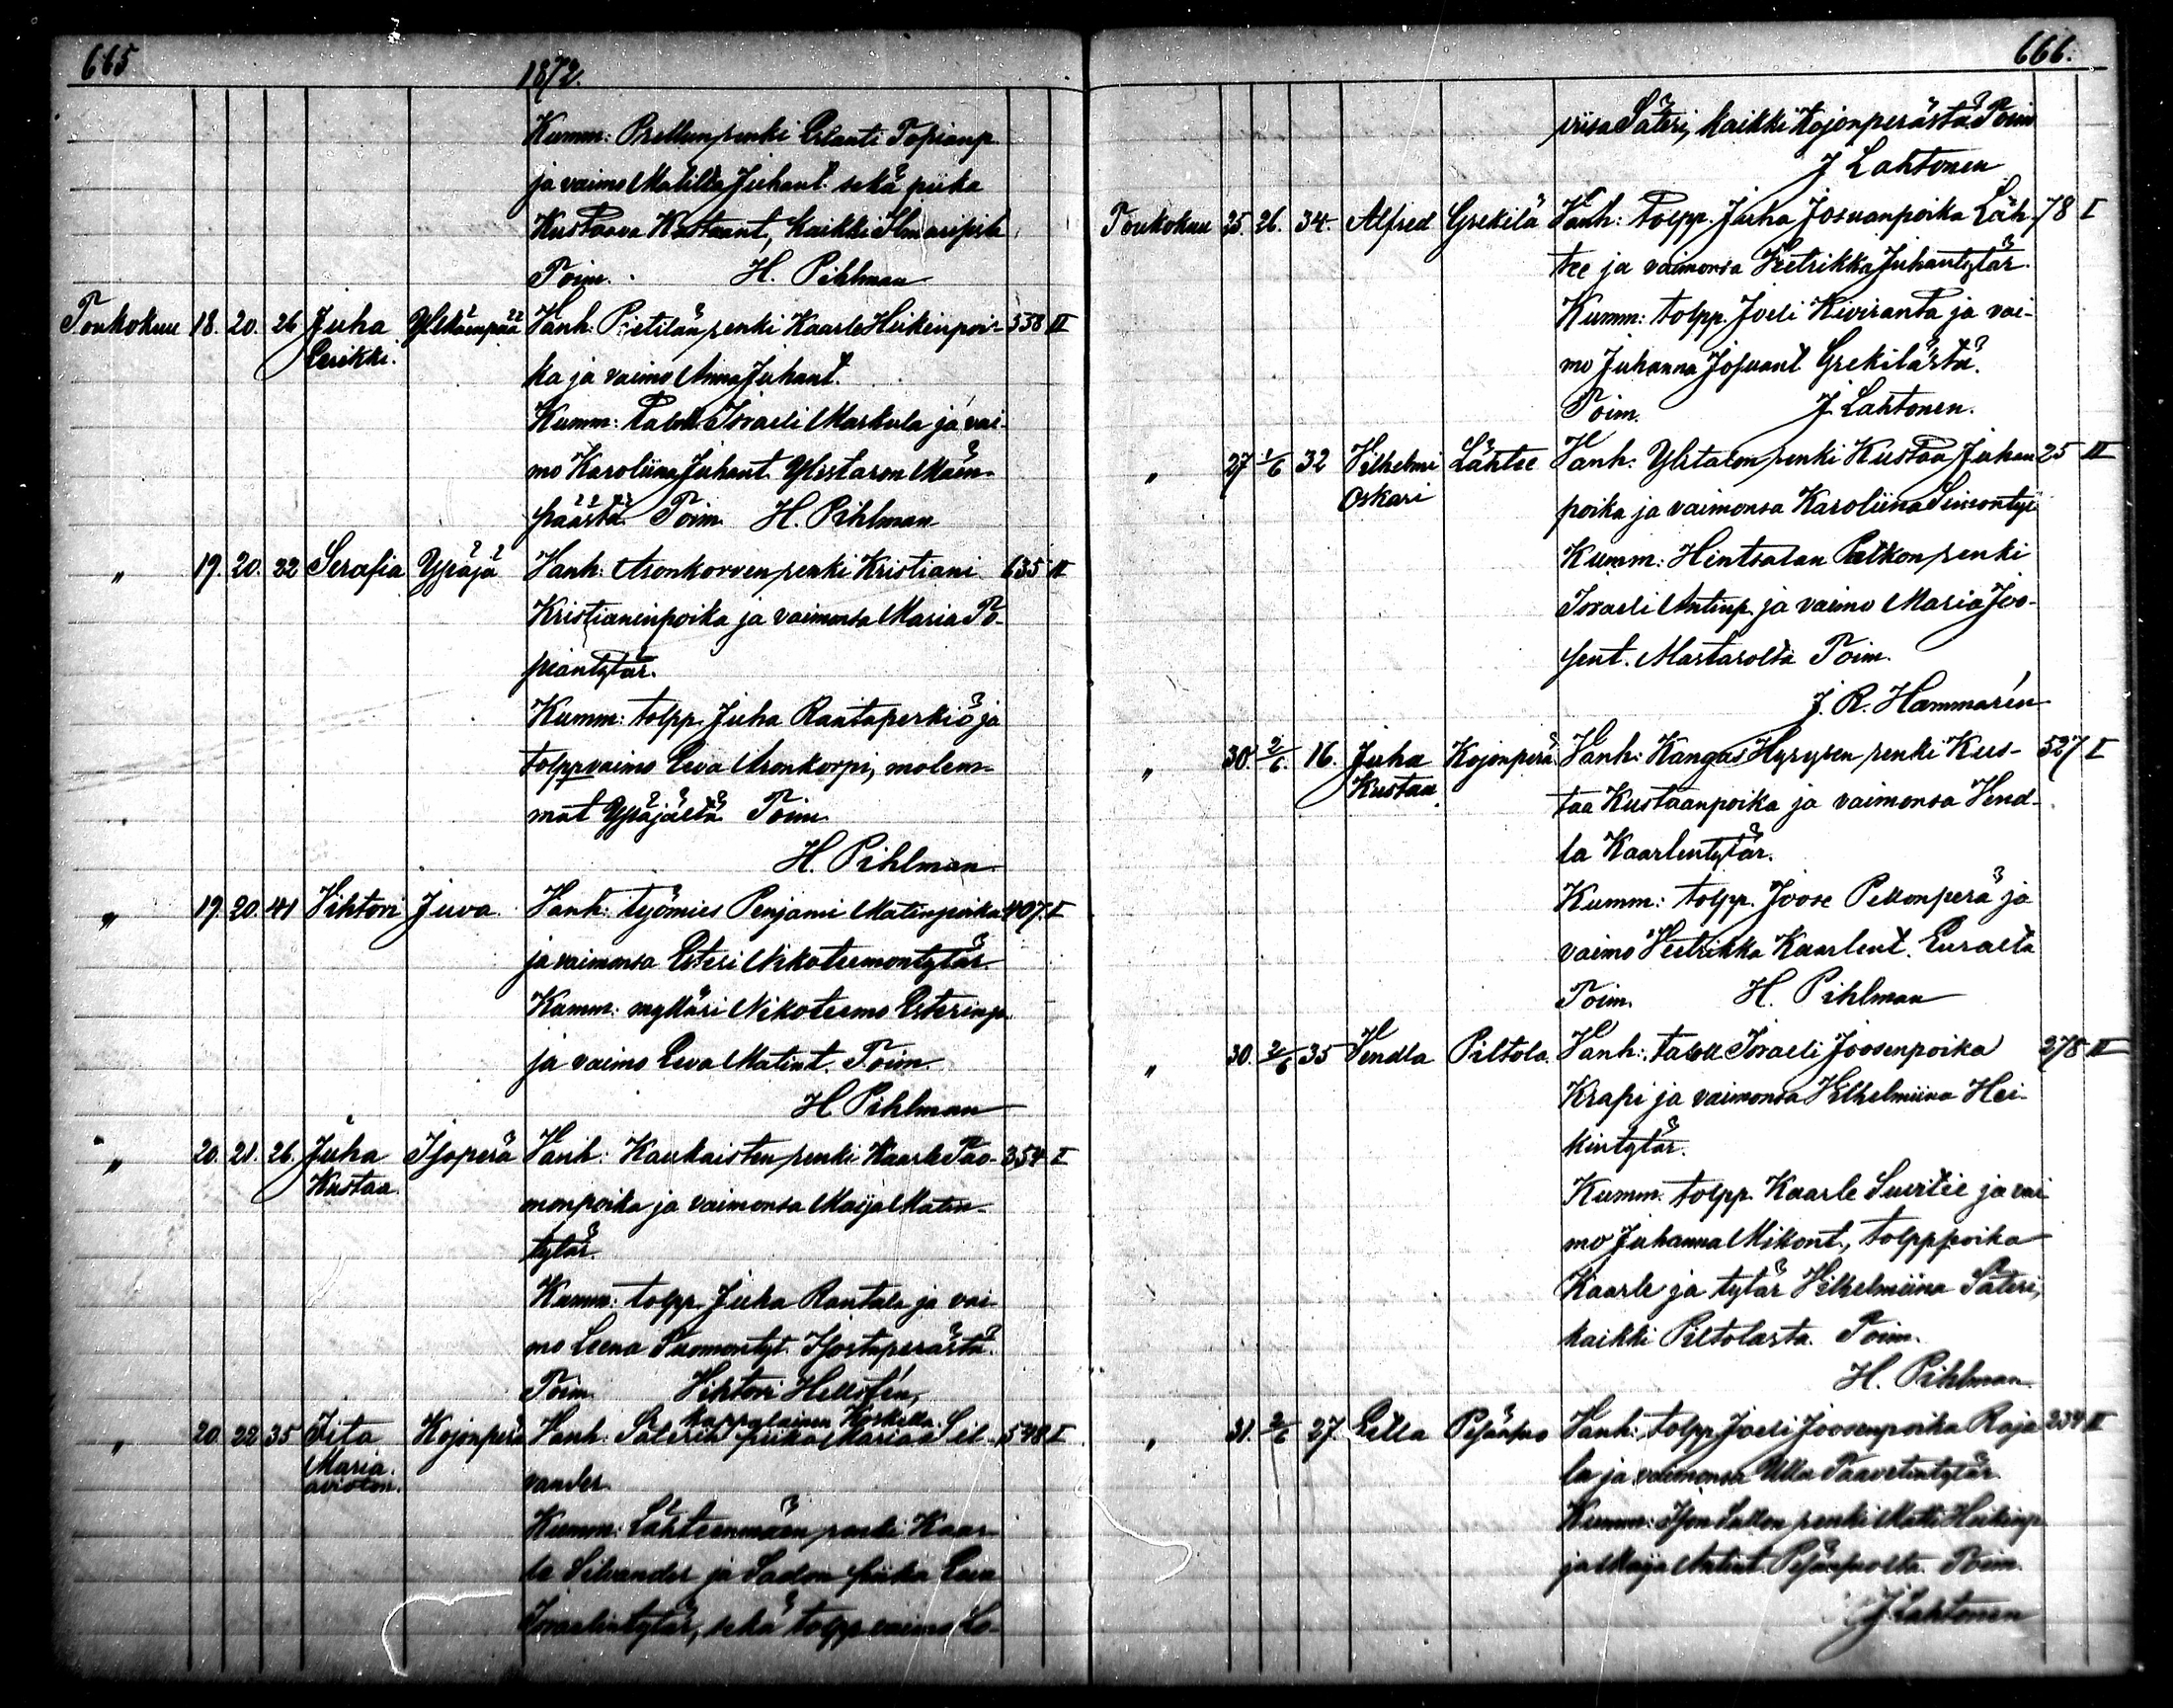 665
1872.
Kumm: Prellun renki Erlanti Topianp.
ja vaimo Matilta Juhant. sekä piika
Kustaava Kustaant, kaikki
Poim. H. Pihlman
Toukokuu 18. 20. 26 Juha Ylistäenpää Vanh: Pietilän renki Kaarle Heikinpoi- 538 II
Eerikki. ka ja vaimo Anna Juhant.
Kumm: taloll. Israeli Markula ja vai-
mo Karoliina Juhant. Ylistaron Mäen-
päästä. Toim. H. Pihlman
" 19. 20. 22 Serafia Ypäjä Vanh: Aronkorven renki Kristiani 635 II
Kristianinpoika ja vaimonsa Maria To-
piantytär.
Kumm: tolpp. Juha Rantaperkiö ja
tolppvaimo Eeva Aronkorpi, molem-
mat Ypäjältä Toim.
H. Pihlman
" 19. 20. 41 Vihtori Juva. Vanh: työmies Penjami Matinpoika 407. I
ja vaimonsa Esteri Nikoteemontytär.
Kumm: mylläri Nikoteemo Esterinp.
ja vaimo Eeva Matint. Toim.
H. Pihlman
" 20. 21. 26. Juha Isoperä Vanh: Kaukaisten renki Kaarle Tuo- 354 I
Kustaa. monpoika ja vaimonsa Maija Matin-
tytär.
Kumm: tolpp. Juha Rantala ja vai-
mo Leena Tuomontyt. Isostaperästä.
Toim. Vihtori Hellsten,
kappalainen Koskella.
" 20. 22 35 Iita Kojonperä Vanh: Säterin piika Maria Sil- 548 I
Maria. vander.
avioton.
Kumm: Lähteenmäen renki Kaar-
le Silvander ja Sadon piika Eeva
Israelintytär, sekä tolpp. vaimo Lo-
666.
viisa Säteri, kaikki Kojonperästä. Toim
J Lahtonen
Toukokuu 25. 26. 34. Alfred Grekilä Vanh: tolpp. Juha Josuanpoika Läh- 78 I
tee ja vaimonsa Veetrikka Juhantytär.
Kumm: tolpp. Joeli Kiviranta ja vai-
mo Juhanna Josuant Grekilästä.
Toim. J. Lahtonen.
" 27 1/6 32 Vilhelmi Lähtee Vanh: Ylitalon renki Kustaa Juhan 25 II
Oskari poika ja vaimonsa Karoliina Simontyt
Kumm: Hintsalan Patkon renki
Israeli Antinp. ja vaimo Maria Joo-
sent. Martarolta Toim.
J. R. Hammarén
" 30. 2/6. 16. Juha Kojonperä Vanh: Kangas Hyrysen renki Kus- 527 I
Kustaa. taa Kustaanpoika ja vaimonsa Vend-
la Kaarlentytär.
Kumm: tolpp. Joose Pellonperä ja
vaimo Veetrikka Kaarlent. Euralta
Toim. H. Pihlman
" 30. 2/6 35 Vendla Piltola. Vanh: taloll Israeli Joosenpoika 278 II
Krapi ja vaimonsa Vilhelmiina Hei-
kintytär.
Kumm: tolpp. Kaarle Suvitie ja vai
mo Juhanna Mikont., tolpppoika
Kaarle ja tytär Vilhelmiina Säteri,
kaikki Piltolasta. Toim.
H. Pihlman.
" 31. 2/6 27 Vanh: tolpp Joeli Joosenpoika Raja 234 II
la ja vaimonsa Ulla Taavetintytär.
Kumm: Ison Sallon renki Matti Heikinp
ja Maija Antint. Toim.
J Lahtonen